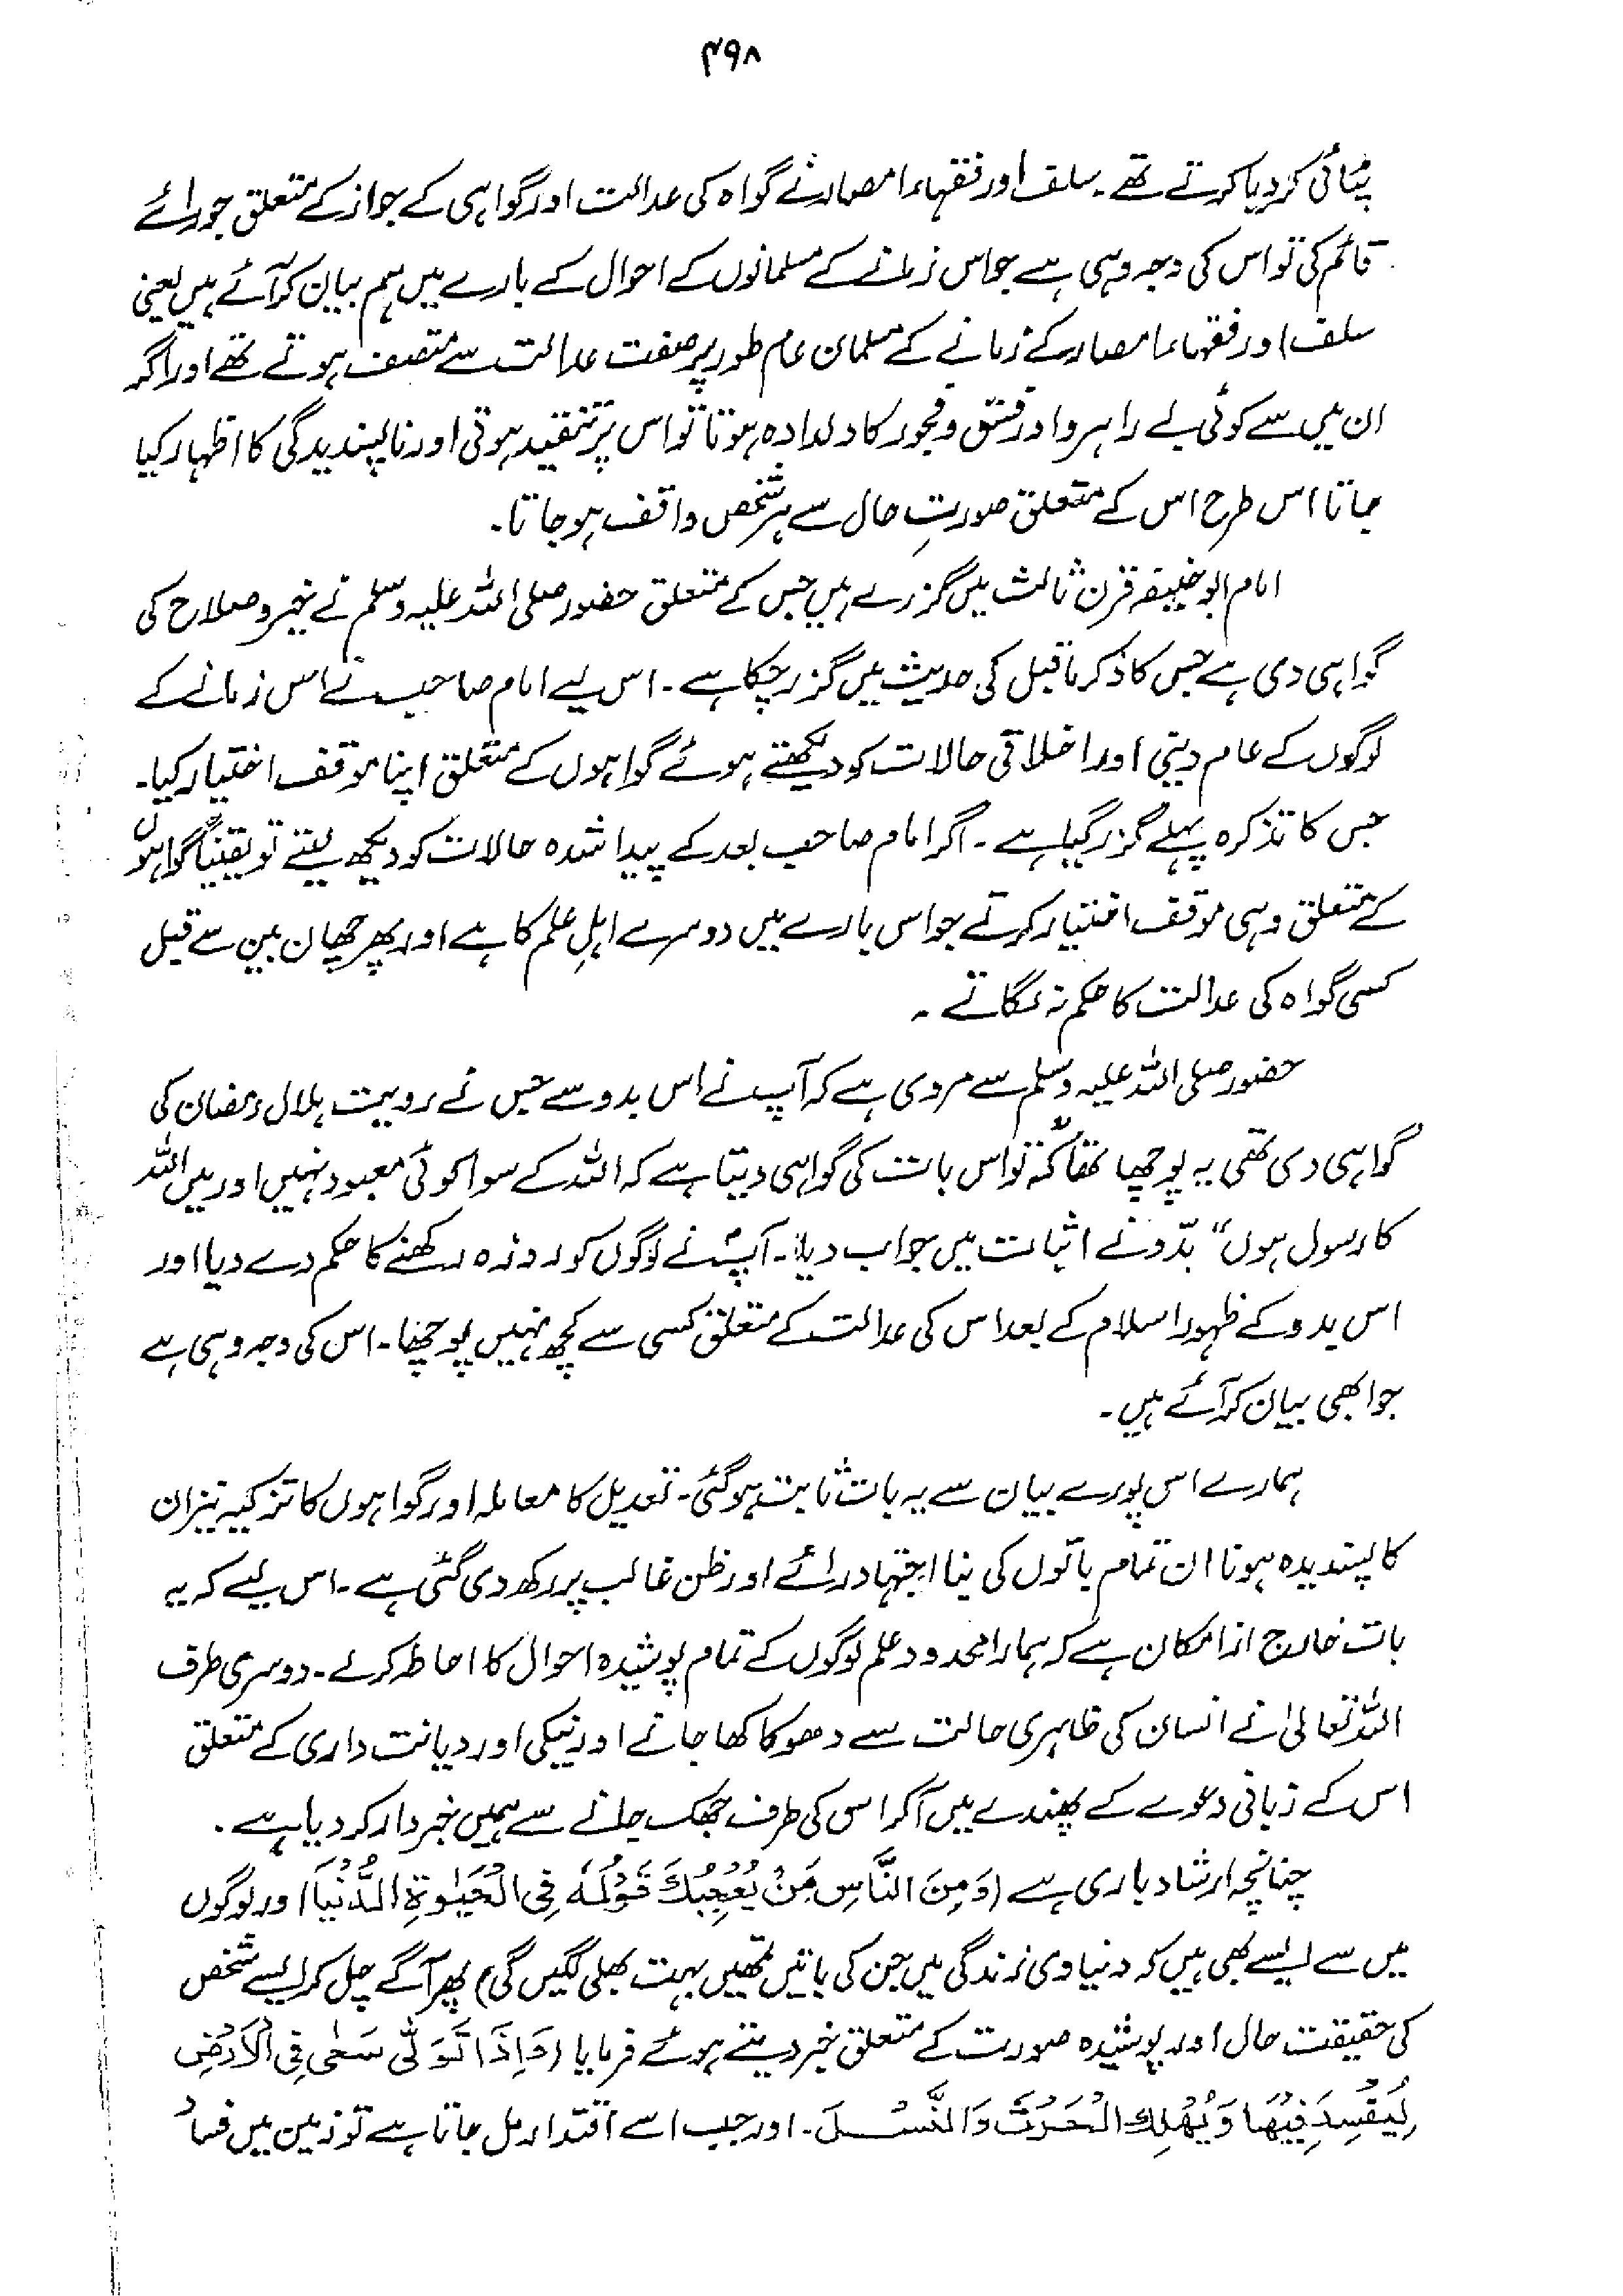 ۴۹۸
پٹائی کر دیا کرتے تھے۔ سلف اور فقہاء امصار نے گواہ کی عدالت اور گواہی کے جواز کے متعلق جو رائے
قائم کی تو اس کی وجہ وہی ہے جو اس زمانے کے مسلمانوں کے احوال کے بارے میں ہم بیان کر آئے ہیں یعنی
سلف اور فقہاء امصار کے زمانے کے مسلمان عام طور پر صفت عدالت سے متصف ہوتے تھے اور اگر
ان میں سے کوئی بے راہرو اور فسق و فجور کا دلدادہ ہوتا تو اس پر تنقید ہوتی اور ناپسندیدگی کا اظہار کیا
جاتا اس طرح اس کے متعلق صورتِ حال سے ہر شخص واقف ہو جاتا۔
امام ابو حنیفہ قرن ثالث میں گزرے ہیں جس کے متعلق حضور صلی اللہ علیہ وسلم نے خیر و صلاح کی
گواہی دی ہے جس کا ذکر ماقبل کی حدیث میں گزر چکا ہے۔ اس لیے امام صاحب نے اس زمانے کے
لوگوں کے عام دینی اور اخلاقی حالات کو دیکھتے ہوئے گواہوں کے متعلق اپنا موقف اختیار کیا۔
جس کا تذکرہ پہلے گزر گیا ہے۔ اگر امام صاحب بعد کے پیدا شدہ حالات کو دیکھ لیتے تو یقیناً گواہوں
کے متعلق وہی موقف اختیار کرتے جو اس بارے میں دوسرے اہلِ علم کا ہے اور پھر چھان بین سے قبل
کسی گواہ کی عدالت کا حکم نہ لگاتے۔
حضور صلی اللہ علیہ وسلم سے مروی ہے کہ آپ نے اس بدو سے جس نے رویت ہلال رمضان کی
گواہی دی تھی یہ پوچھا تھا کہ "تو اس بات کی گواہی دیتا ہے کہ اللہ کے سوا کوئی معبود نہیں اور میں اللہ
کا رسول ہوں" بدّو نے اثبات میں جواب دیا۔ آپؐ نے لوگوں کو روزہ رکھنے کا حکم دے دیا اور
اس بدو کے ظہور اسلام کے بعد اس کی عدالت کے متعلق کسی سے کچھ نہیں پوچھا۔ اس کی وجہ وہی ہے
جو ابھی بیان کر آئے ہیں۔
ہمارے اس پورے بیان سے یہ بات ثابت ہو گئی۔ تعدیل کا معاملہ اور گواہوں کا تزکیہ نیز ان
کا پسندیدہ ہونا ان تمام باتوں کی بنا اجتہاد رائے اور ظن غالب پر رکھ دی گئی ہے۔ اس لیے کہ یہ
بات خارج از امکان ہے کہ ہمارا محدود علم لوگوں کے تمام پوشیدہ احوال کا احاطہ کرلے۔ دوسری طرف
اللہ تعالیٰ نے انسان کی ظاہری حالت سے دھوکا کھا جانے اور نیکی اور دیانت داری کے متعلق
اس کے زبانی دعوے کے پھندے میں آکر اس کی طرف جھک جانے سے ہمیں خبردار کر دیا ہے۔
چنانچہ ارشاد باری ہے (وَمِنَ النَّاسِ مَنْ یُّعْجِبُكَ قَوْلُهٗ فِی الْحَیٰوةِ الدُّنْیَا اور لوگوں
میں سے ایسے بھی ہیں کہ دنیاوی زندگی میں جن کی باتیں تمھیں بہت بھلی لگیں گی) پھر آگے چل کر ایسے شخص
کی حقیقت حال اور پوشیدہ صورت کے متعلق خبر دیتے ہوئے فرمایا (وَاِذَا تَوَلّٰی سَعٰی فِی الْاَرْضِ
لِیُفْسِدَ فِیْهَا وَیُهْلِكَ الْحَرْثَ وَالنَّسْلَ۔ اور جب اسے اقتدار مل جاتا ہے تو زمین میں فساد